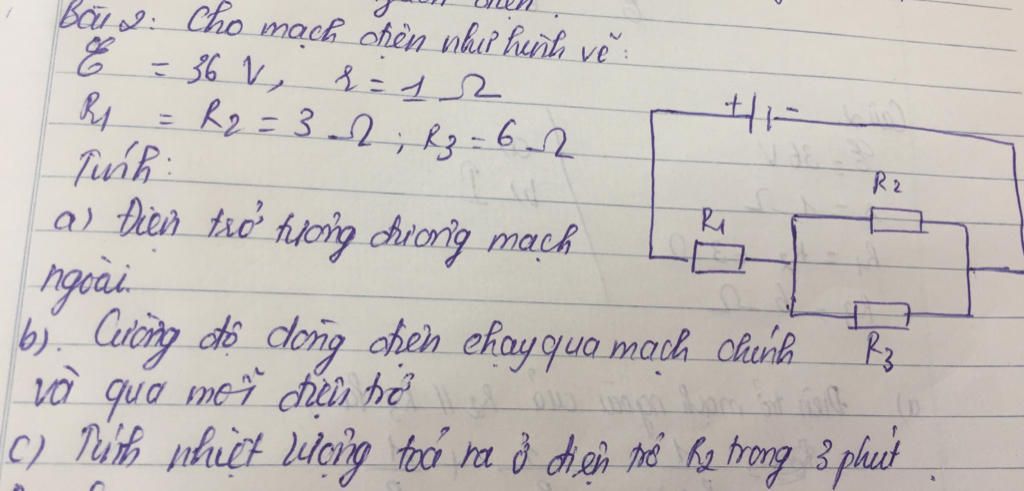 Bài 2: Cho mạch điện như hình vẽ:
ℰ = 36 V, r = 1 Ω
R1 = R2 = 3 Ω; R3 = 6 Ω
Tính:
a) Điện trở tương đương mạch
ngoài.
b). Cường độ dòng điện chạy qua mạch chính
và qua mỗi điện trở
c) Tính nhiệt lượng toả ra ở điện trở R2 trong 3 phút.
+ -
R2
R1
R3